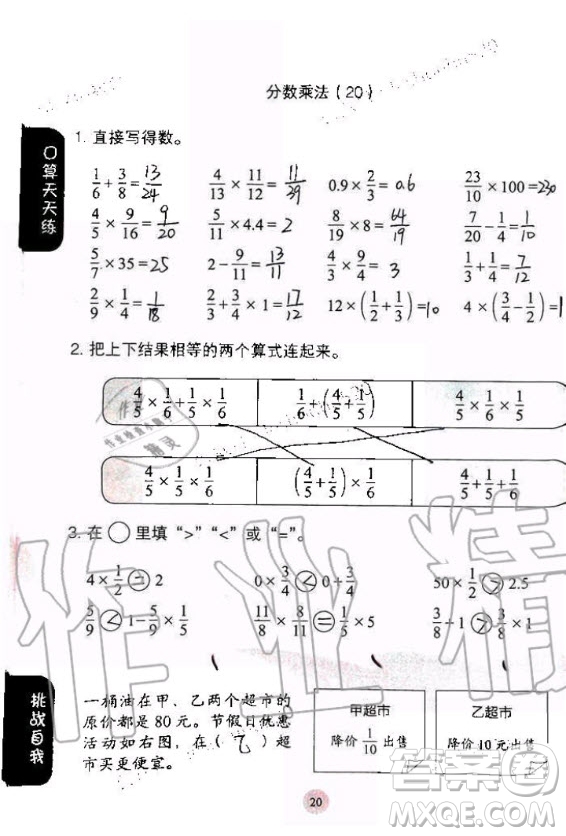 分数乘法(20)
口算天天练
1. 直接写得数。
1/6 + 3/8 = 13/24 4/13 × 11/12 = 11/39 0.9 × 2/3 = 0.6 23/10 × 100 = 230
4/5 × 9/16 = 9/20 5/11 × 4.4 = 2 8/19 × 8 = 64/19 7/20 - 1/4 = 1/10
5/7 × 35 = 25 2 - 9/11 = 13/11 4/3 × 9/4 = 3 1/3 + 1/4 = 7/12
2/9 × 1/4 = 1/18 2/3 + 3/4 × 1 = 17/12 12 × (1/2 + 1/3) = 10 4 × (3/4 - 1/2) = 1
2. 把上下结果相等的两个算式连起来。
4/5 × 1/6 + 1/5 × 1/6 1/6 + (4/5 + 1/5) 4/5 × 1/6 × 1/5
4/5 × 1/5 × 1/6 (4/5 + 1/5) × 1/6 4/5 + 1/5 + 1/6
3. 在○里填“>”“<”或“=”。
4 × 1/2 = 2 0 × 3/4 < 0 + 3/4 50 × 1/2 > 2.5
5/9 < 1 - 5/9 × 1/5 11/8 × 8/11 = 1/5 × 5 3/8 ÷ 1 > 3/8 × 1
挑战自我
一桶油在甲、乙两个超市的
原价都是 80 元。节假日优惠
活动如右图，在（乙）超
市买更便宜。
甲超市
降价 1/10 出售
乙超市
降价 10 元出售
20
作业精灵
答案圈
MXQE.COM